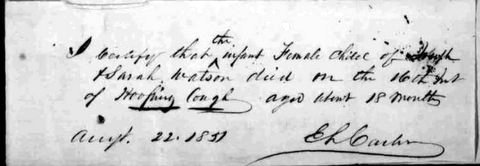 I Certify that the infant Female Child of Joseph
& Sarah Watson died on the 16th Inst
of Hooping Cough aged about 18 Months
Augt. 22. 1851